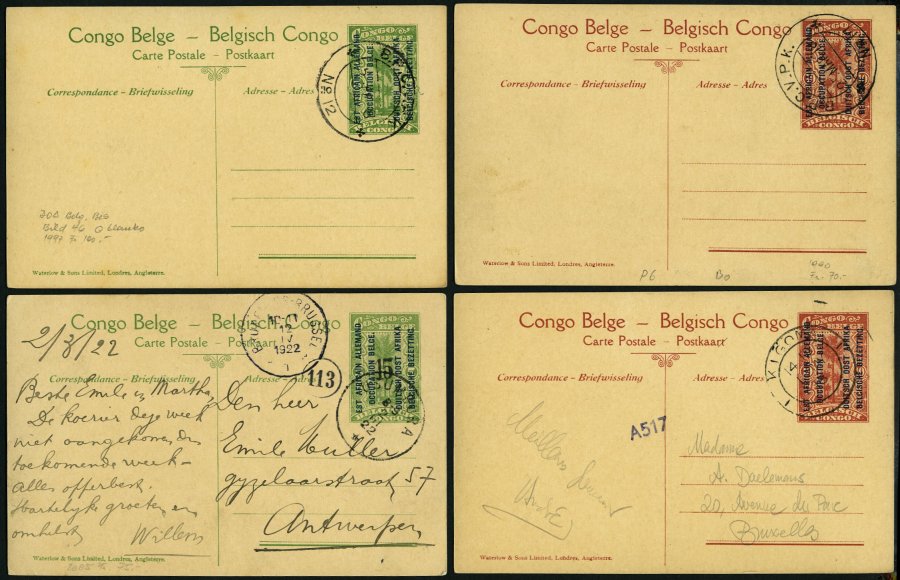 Congo Belge — Belgisch Congo
Carte Postale - Postkaart
Correspondance - Briefwisseling
Adresse - Adres
EST AFRICAIN ALLEMAND
OCCUPATION BELGE.
DUITSCH OOST AFRIKA
BELGISCHE BEZETTING
BELGISCH
CONGO
N
12
1997 Fr. 160.-
Waterlow & Sons Limited, Londres, Angleterre.
Congo Belge — Belgisch Congo
Carte Postale - Postkaart
Correspondance - Briefwisseling
Adresse - Adres
EST AFRICAIN ALLEMAND
OCCUPATION BELGE.
DUITSCH OOST AFRIKA
BELGISCHE BEZETTING
BELGISCH
CONGO
V.P.K.
P6
1990
Fr. 70.-
Waterlow & Sons Limited, Londres, Angleterre.
Congo Belge — Belgisch Congo
Carte Postale - Postkaart
Correspondance - Briefwisseling
Adresse - Adres
BRUSSEL
12
1922
113
CONGO
BELGE
EST AFRICAIN ALLEMAND
OCCUPATION BELGE.
DUITSCH OOST AFRIKA
BELGISCHE BEZETTING
15
2/3/22
Beste Emile en Martha,
De koerier deze week
niet aangekomen dus
toekomende week-
alles opperbest.
Hartelijke groeten en
omhelst
Willem
Den heer
Emile Muller
gyzelaarstraat 57
Antwerpen
Waterlow & Sons Limited, Londres, Angleterre.
Congo Belge — Belgisch Congo
Carte Postale - Postkaart
Correspondance - Briefwisseling
Adresse - Adres
KIGOMA
EST AFRICAIN ALLEMAND
OCCUPATION BELGE.
DUITSCH OOST AFRIKA
BELGISCHE BEZETTING
BELGISCH
CONGO
A517
Madame
A. Daelemans
20, Avenue du Parc
Bruxelles
Waterlow & Sons Limited, Londres, Angleterre.